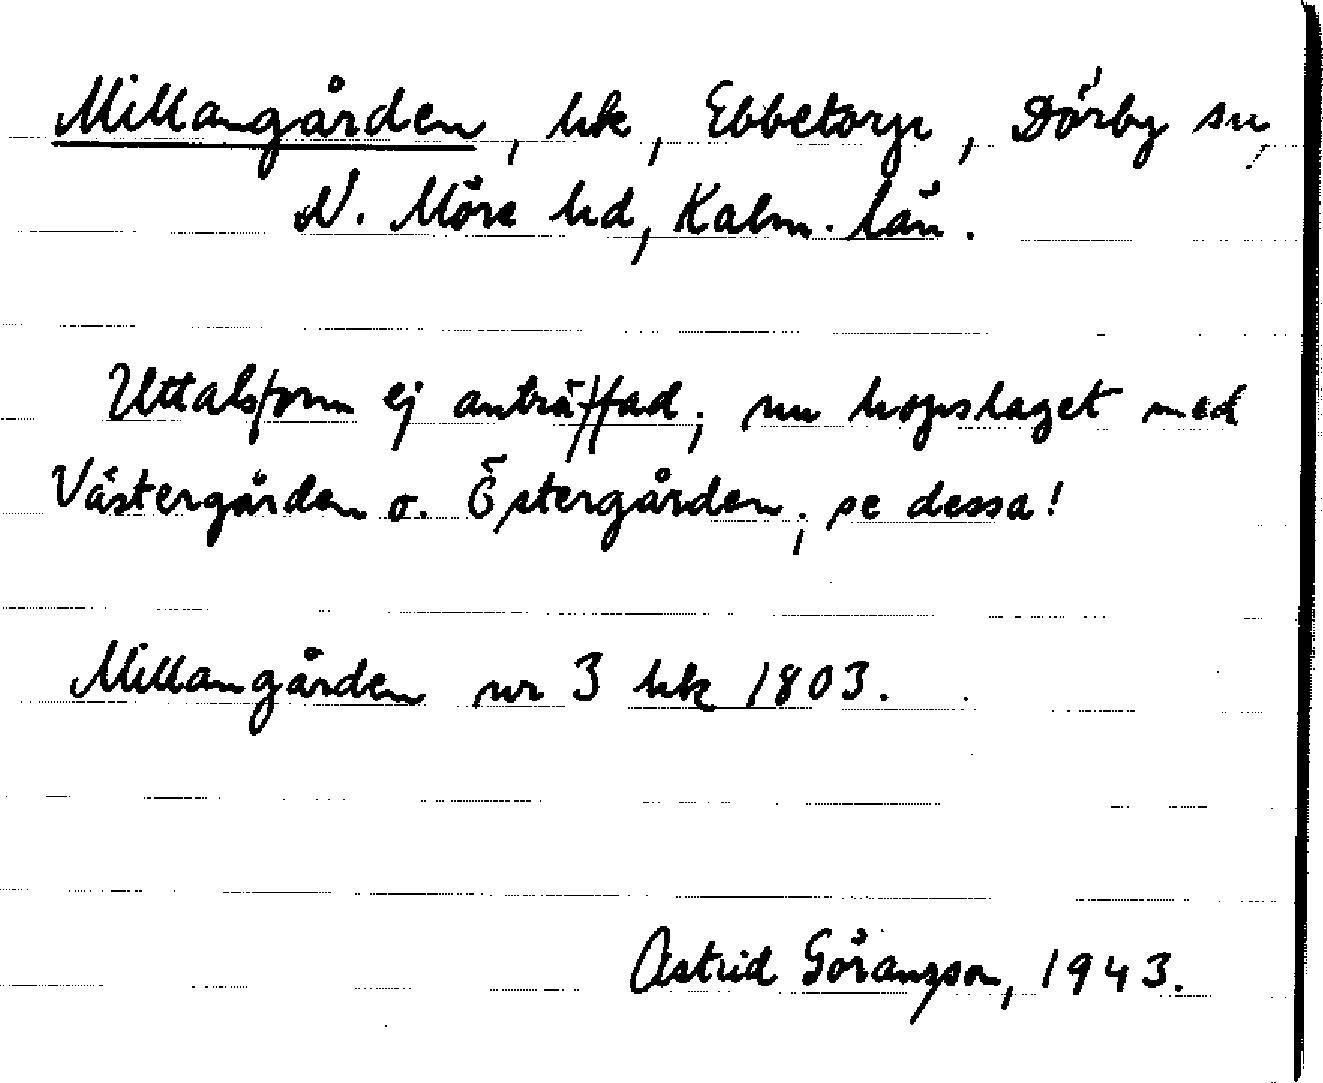 Millangården, hk, Ebbetorp, Dörby sn,
N. Möre hd, Kalm. län.
Uttalsform ej anträffad; nu hopslaget med
Västergården o. Östergården; se dessa!
Millangården nr 3 hk 1803.
Astrid Göranzson, 1943.